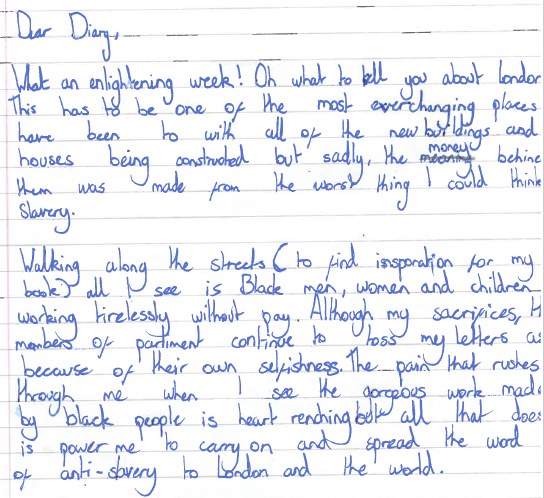 Dear Diary,
What an enlightening week! Oh what to tell you about London
This has to be one of the most everchanging places
have been to with all of the new buildings and
houses being constructed but sadly, the money behind
them was made from the worst thing I could think
Slavery.
Walking along the streets (to find insporation for my
book) all I see is Black men, women and children
working tirelessly without pay. Although my sacrifices,
members of parliment continue to toss my letters as
because of their own selfishness. The pain that rushes
through me when I see the gorgeous work made
by black people is heart renching but all that does
is power me to carry on and spread the word
of anti-slavery to London and the world.